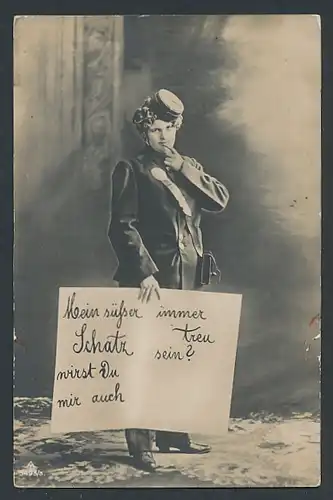 Mein süßer immer
Schatz treu
wirst Du sein?
mir auch